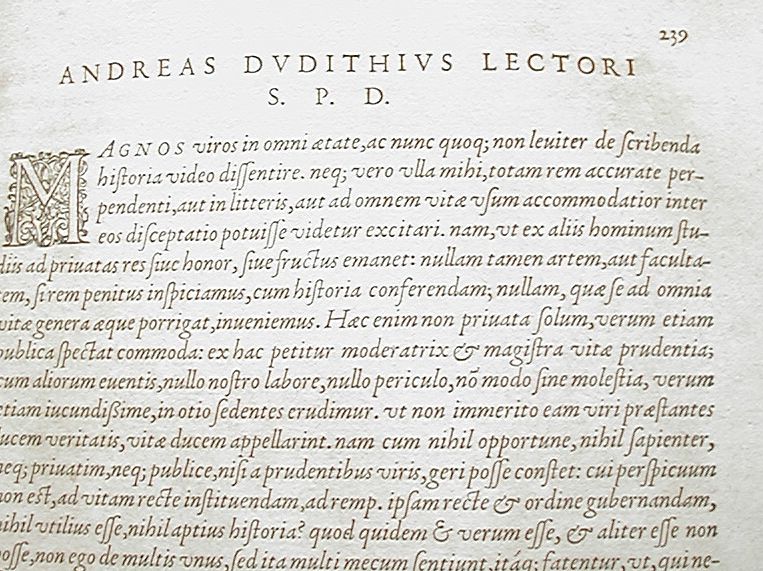 239
ANDREAS DVDITHIVS LECTORI
S. P. D.
MAGNOS viros in omni ætate, ac nunc quoq; non leuiter de ſcribenda
hiſtoria video diſſentire. neq; vero vlla mihi, totam rem accurate per-
pendenti, aut in litteris, aut ad omnem vitæ vſum accommodatior inter
eos diſceptatio potuiſſe videtur excitari. nam, vt ex aliis hominum ſtu-
diis ad priuatas res ſiue honor, ſiue fructus emanet: nullam tamen artem, aut faculta-
tem, ſi rem penitus inſpiciamus, cum hiſtoria conferendam; nullam, quæ ſe ad omnia
vitæ genera æque porrigat, inueniemus. Hæc enim non priuata ſolum, verum etiam
publica ſpectat commoda: ex hac petitur moderatrix & magiſtra vitæ prudentia;
cum aliorum euentis, nullo noſtro labore, nullo periculo, nō modo ſine moleſtia, verum
etiam iucundiſſime, in otio ſedentes erudimur. vt non immerito eam viri præſtantes
lucem veritatis, vitæ ducem appellarint. nam cum nihil opportune, nihil ſapienter,
neq; priuatim, neq; publice, niſi a prudentibus viris, geri poſſe conſtet: cui perſpicuum
non eſt, ad vitam recte inſtituendam, ad remp. ipſam recte & ordine gubernandam,
nihil vtilius eſſe, nihil aptius hiſtoria? quod quidem & verum eſſe, & aliter eſſe non
poſſe, non ego de multis vnus, ſed ita multi mecum ſentiunt, itáq; fatentur, vt, qui ne-